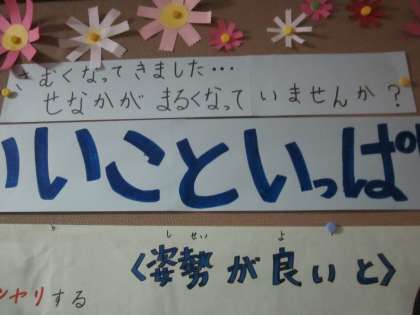 さむくなってきました・・・
せなかが まるくなって いませんか？
いいこといっぱ
しせい よ
〈姿勢が良いと〉
ンヤリする